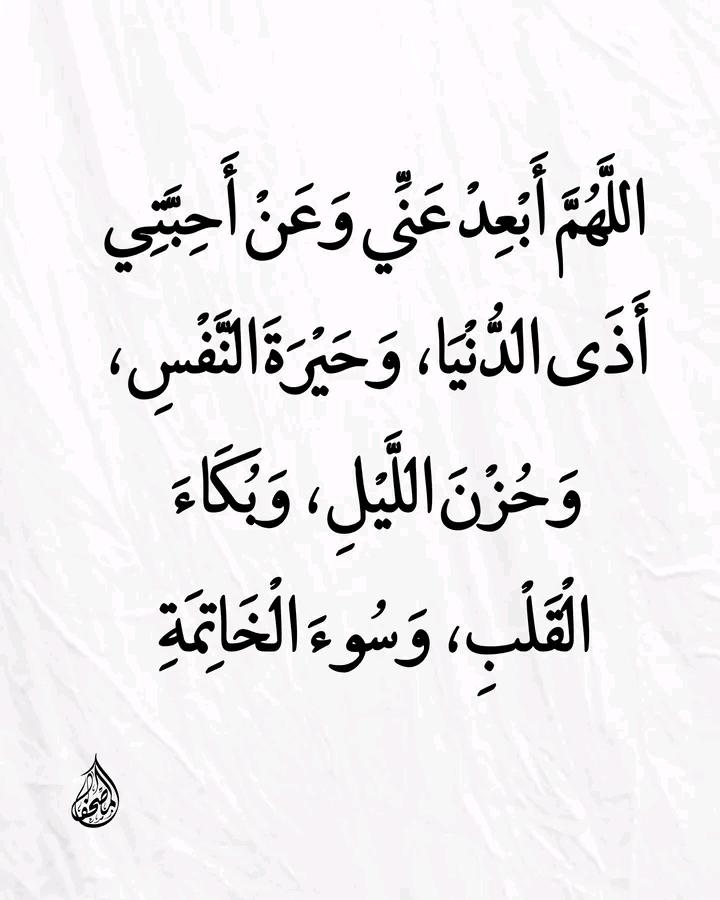 اللَّهُمَّ أَبْعِدْ عَنِّي وَعَنْ أَحِبَّتِي
أَذَى الدُّنْيَا، وَحَيْرَةَ النَّفْسِ،
وَحُزْنَ اللَّيْلِ، وَبُكَاءَ
الْقَلْبِ، وَسُوءَ الْخَاتِمَةِ